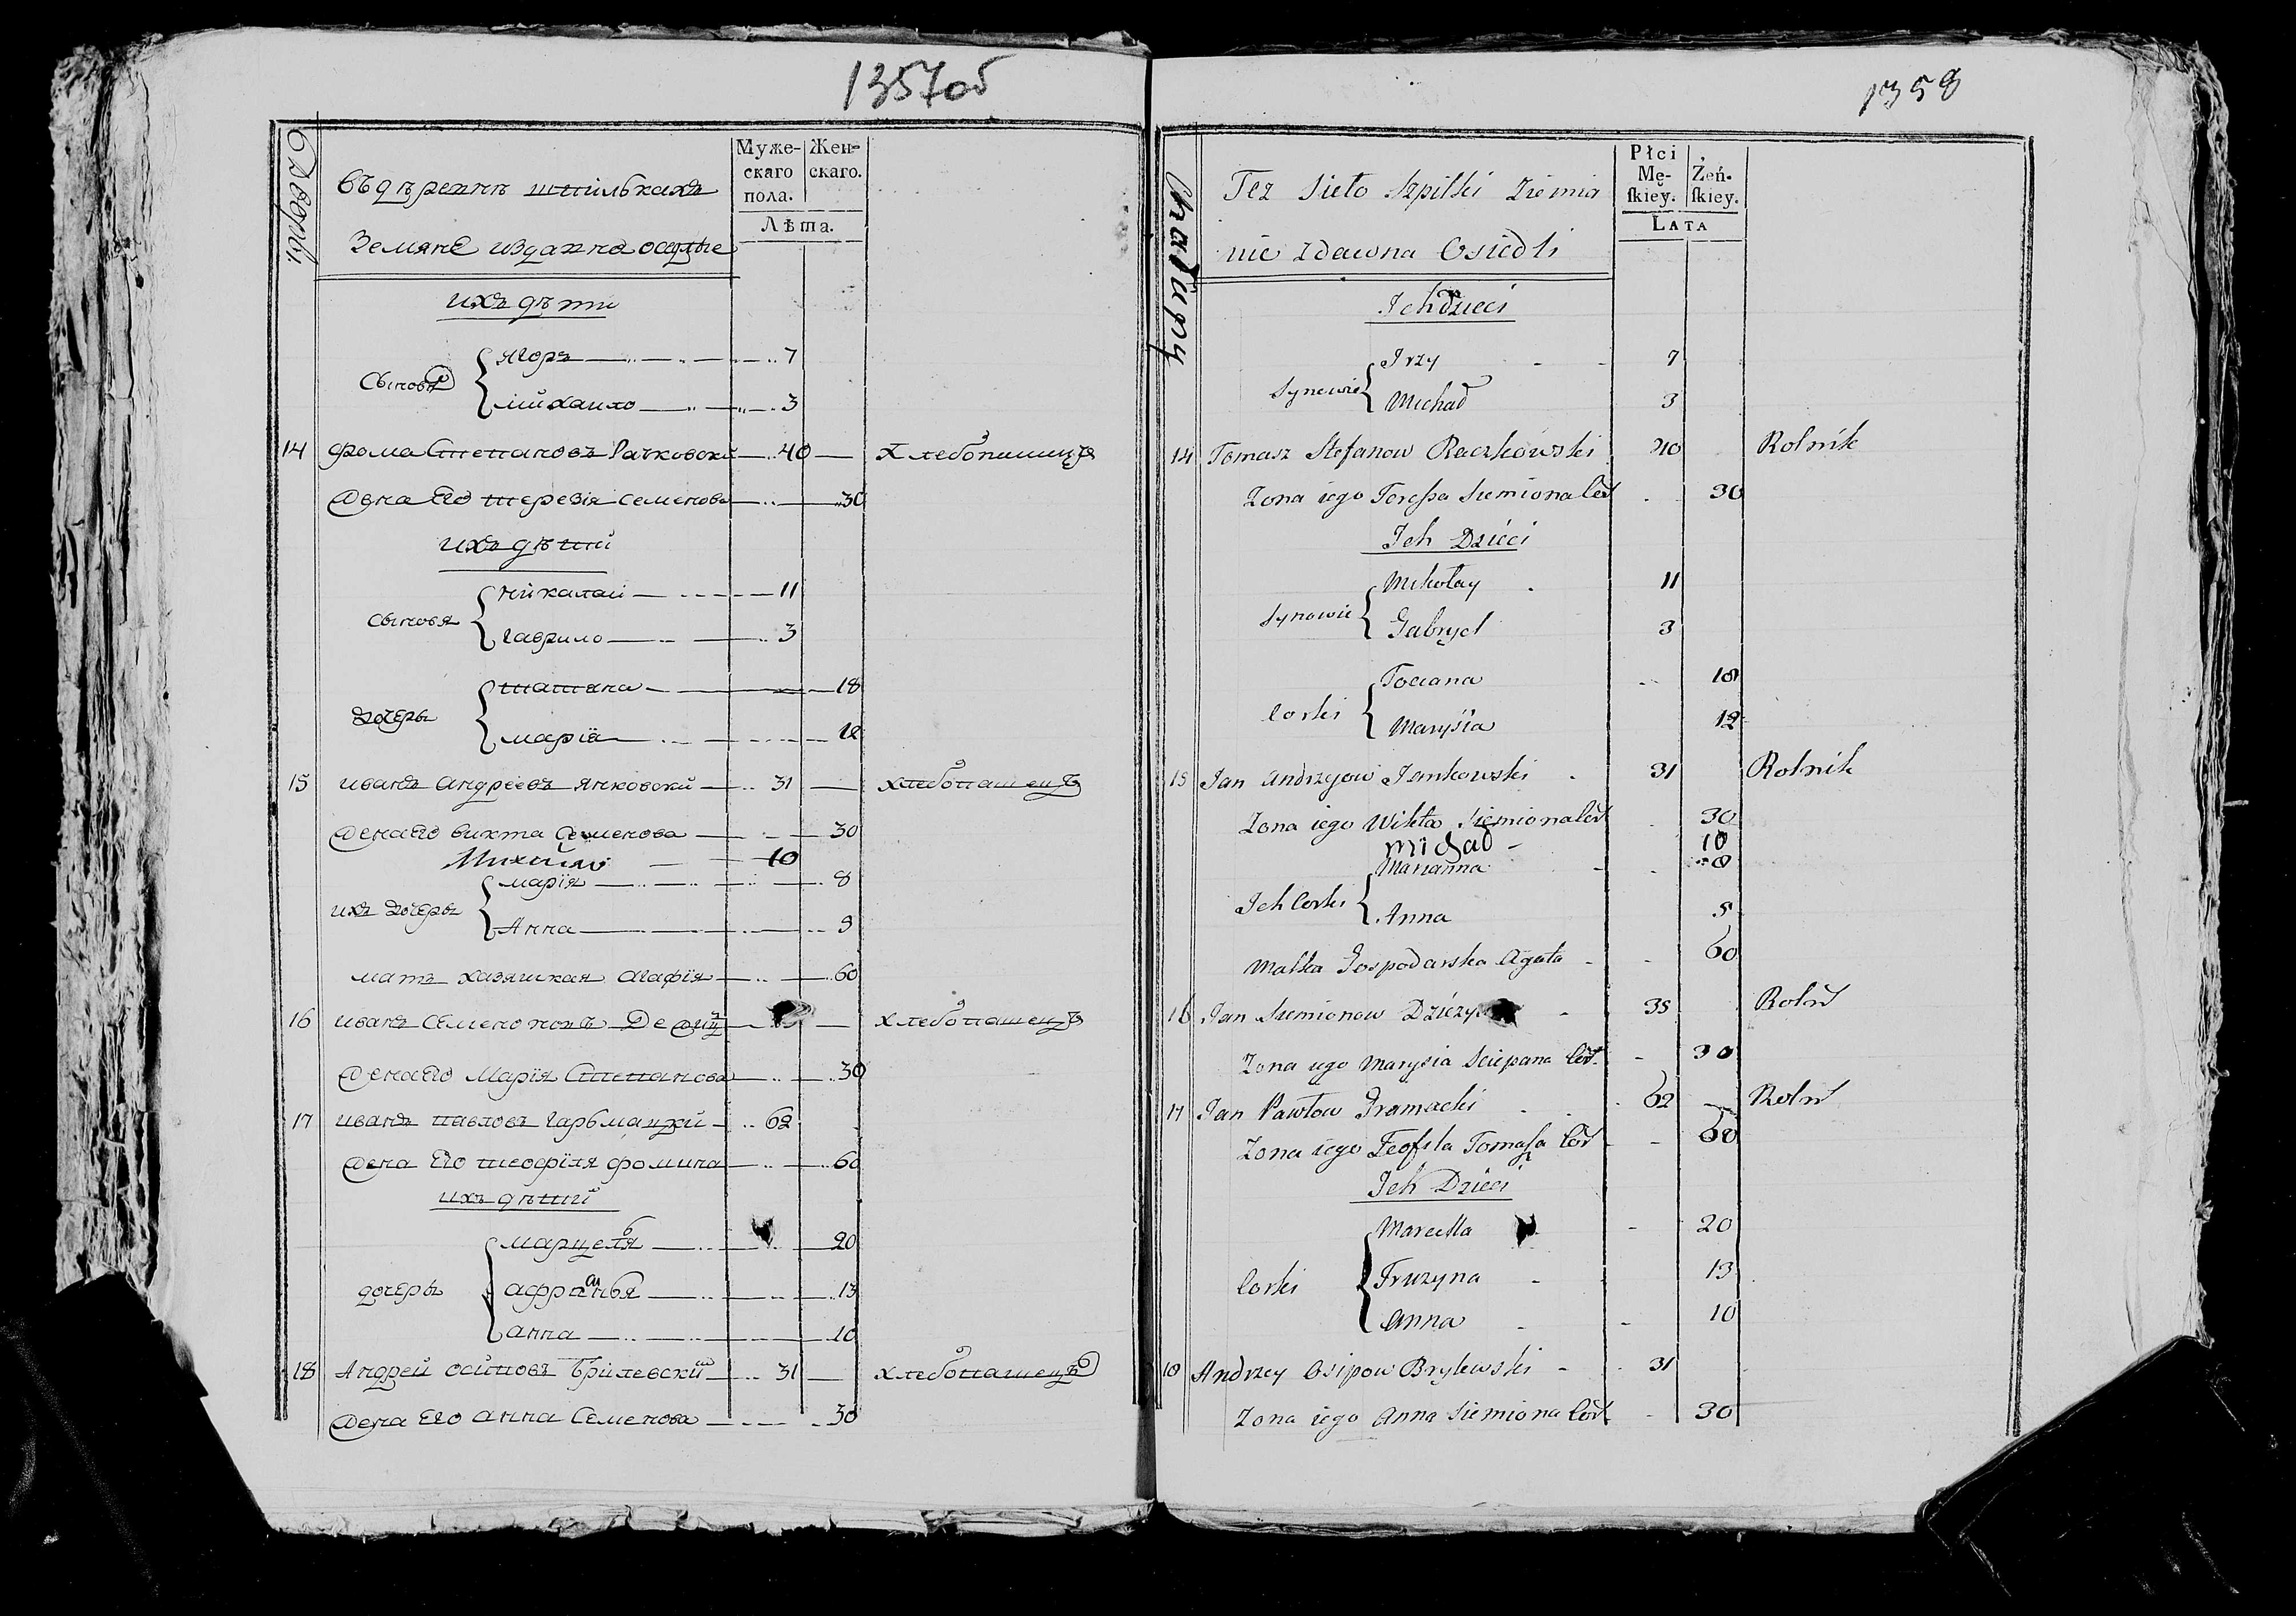 1357об
Дворы.
въ деревнѣ шпилькахъ
Земяне издавна оседлые
Муже-
скаго
пола.
Жен-
скаго.
Лѣта.
ихъ дѣти
Сыновя
ягоръ 7
михаило 3
14 Фома Степановъ Рачковски 40 Хлебопашецъ
жена его терезiя семенова 30
ихъ дѣтий
сыновя
никалаи 11
гаврило 3
дочеръ
татяна 18
марiя 12
15 иванъ андреевъ янковски 31 хлебопашецъ
жена его викта семенова 30
Михайло 10
ихъ дочеръ
марiя 8
Анна 9
мать хазяиская агафiя 60
16 иванъ семеновъ хлебопашецъ
жена его Марiя Степанова 30
17 иванъ павловъ гарьмацки 62
жена его теофiля фомина 60
ихъ дѣтий
дочеръ
марцеля 20
13
анна 10
18 Андрей осиповъ Брилевский 31 хлебопашецъ
жена его анна Семенова 30
1358
Chałupy
Tez Sieło Szpilki Ziemia
nie zdawna Osiedli
Płci
Mę-
skiey.
Żeń-
skiey.
LATA
Ich dzieci
Synowie
Jrzy 7
Michał 3
14 Tomasz Stefanow Raczkowski 40 Rolnik
Zona iego Teressa Siemiona Cór 30
Ich Dzieci
Synowie
Mikołay 11
Gabryel 3
Corki
Tociana 18
Marysia 12
15 Jan Andrzyow Jankowski 31 Rolnik
Zona iego Wikta Siemiona Cór 30
Michał 10
Ich Corki
Marianna 8
Anna 5
Matka Gospodarska Agata 60
16 Jan Siemionow 35 Roln
Zona iego Marysia Sciepana Cór. 30
17 Jan Pawłow Gramacki 62 Roln
Zona iego Teofila Tomasza Cór 60
Ich Dzieci
Corki
Marcella 20
Fruzyna 13
Anna 10
18 Andrzey Osipow Brylewski 31
Zona iego Anna Siemiona Cór 30